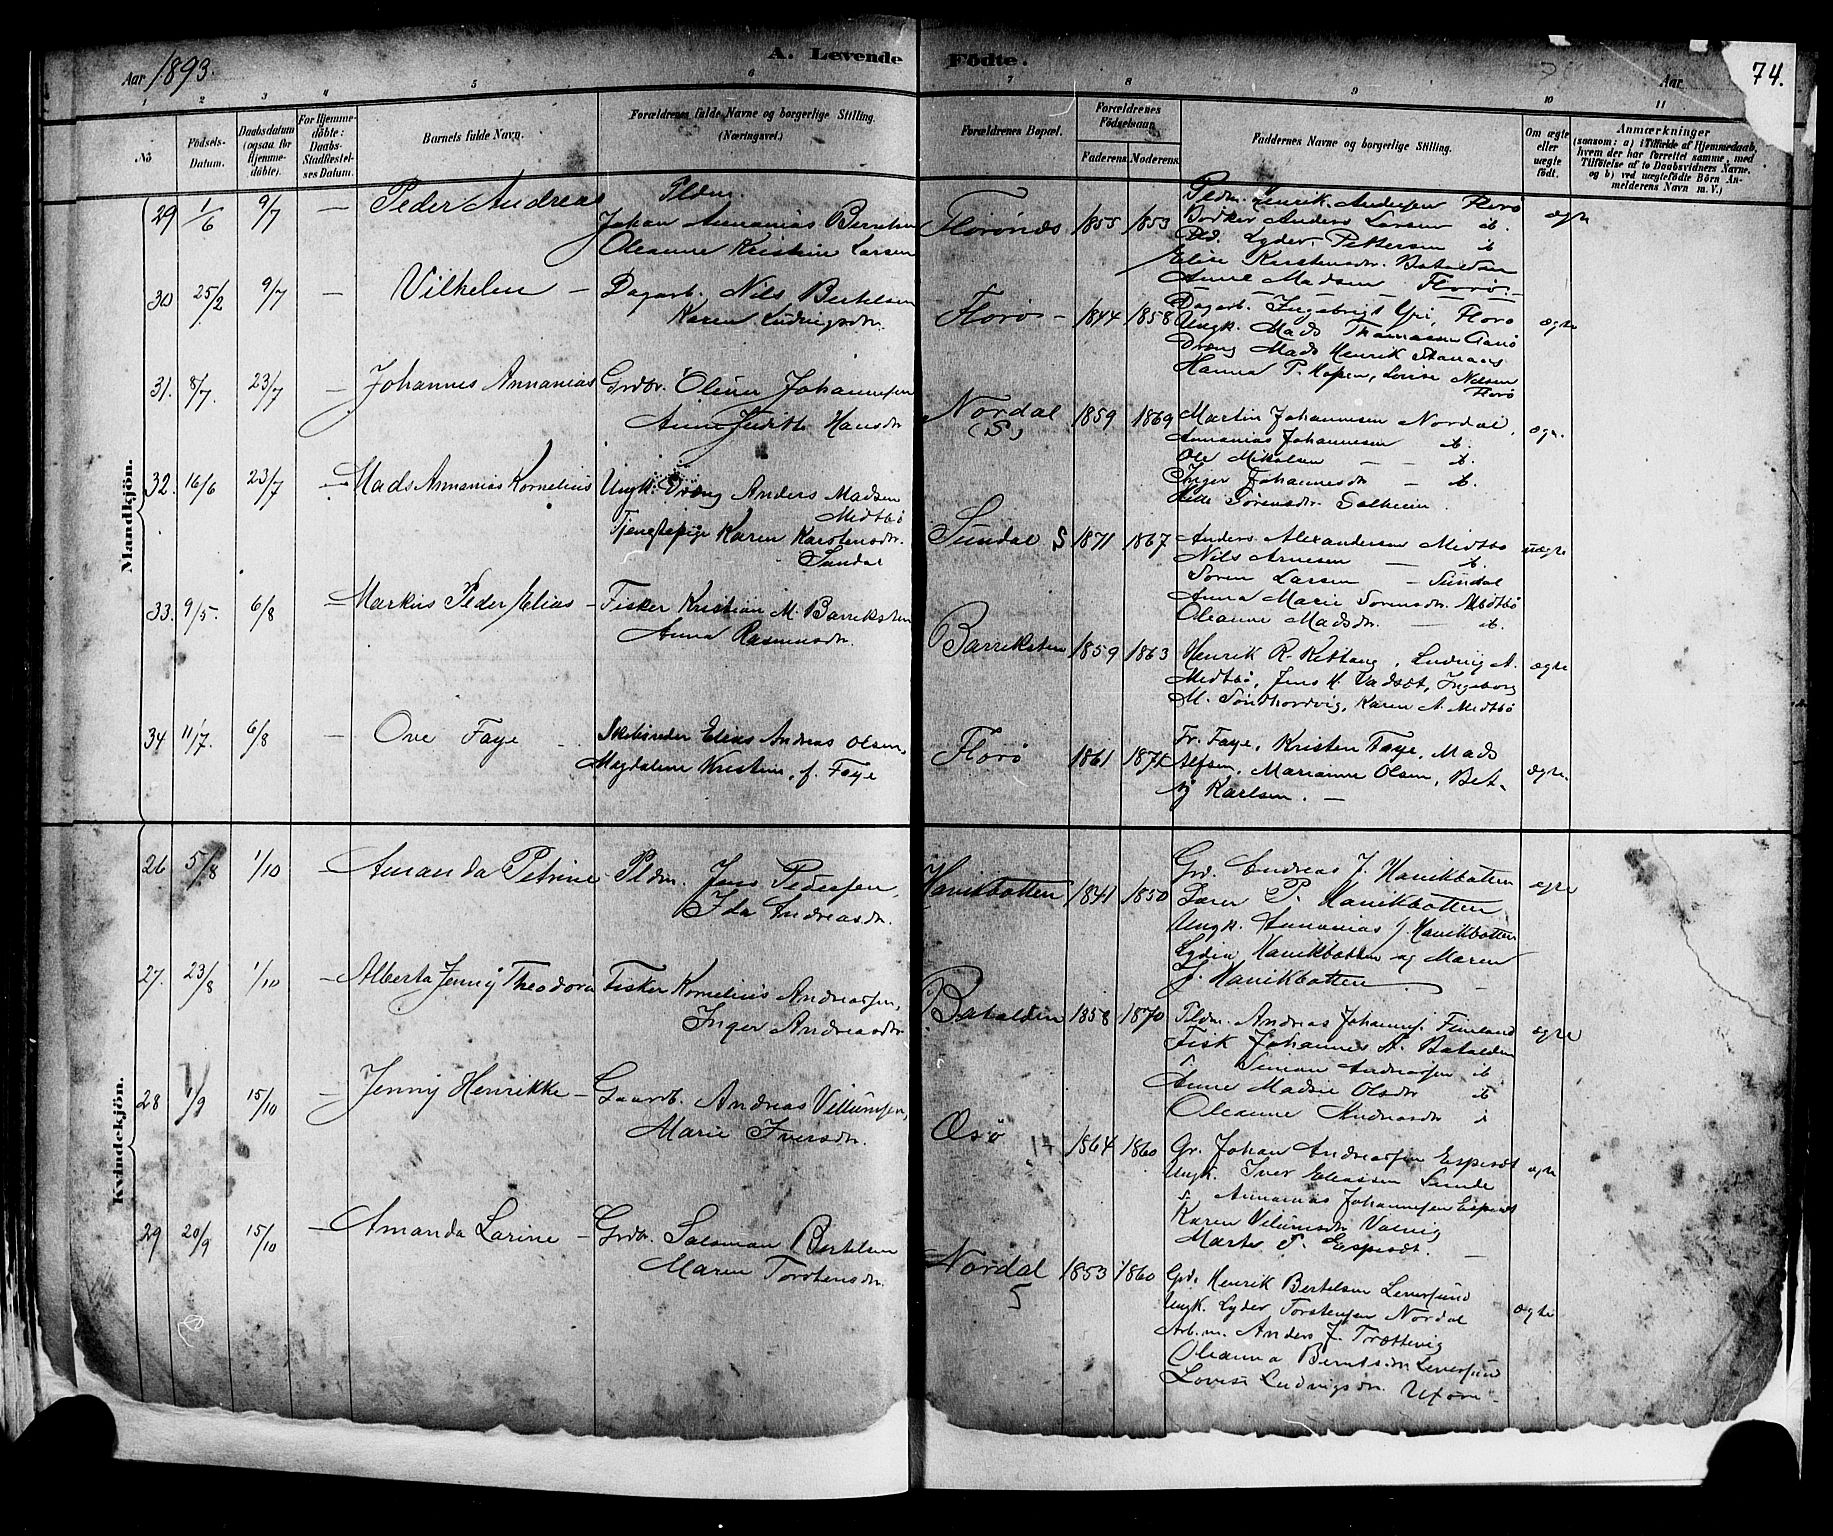 Aar 1893.
A. Levende Födte.
Aar
74.
1 2 3 4 5 6 7 8 9 10 11
No
Födsels-Datum.
Daabsdatum (ogsaa for Hjemme-döbte).
For Hjemme-döbte: Daabs-Stadfæstel-ses Datum.
Barnets fulde Navn.
Forældrenes fulde Navne og borgerlige Stilling. (Næringsvei.)
Forældrenes Bopæl.
Forældrenes Födselsaar.
Faderens. Moderens.
Faddernes Navne og borgerlige Stilling.
Om ægte eller uægte födt.
Anmærkninger
(saasom: a) i Tilfælde af Hjemmedaab, hvem der har forrettet samme, med Tilföielse af to Daabsvidners Navne. og b) ved uægtefödte Börn An-melderens Navn m. V.)
Mandkjön.
29 1/6 9/7 — Peder Andreas
Pldm.
Johan Annanias Berntsen
Oleanne Kristine Larsen
Florönæs 1855 1853
Pldm. Henrik Andersen Florö
Bödker Anders Larsen ib.
Pld. Lyder Pettersen ib
Elise Karstensdr. Batalden
Anne Madsen — Florö —
ægte
30 25/2 9/7 — Vilhelm —
Dagarb. Nils Bertelsen
Karen Ludvigsdr.
Florö — 1844 1858
Dagarb. Ingebrigt Yri, Florö
Ungk. Mads Thomassen
Dreng Mads Henrik
Hanna P. Kopen, Lovise Nilsen
Florö
ægte
31. 8/7. 23/7 — Johannes Annanias
Grdbr. Oliver Johannesen
Anne Judithe Hansdr
Nordal (S) 1859 1869
Martin Johannesen Nordal,
Annanias Johannesen ib.
Ole Mikalsen — — ib.
Inger Johannesdr — ib.
Sörensdr. Solheim.
ægte.
32. 16/6 23/7 — Mads Annanias Kornelius
Ungk. Dreng Anders Madsen
Medtbö
Tjenestepige Karen Karstensdr.
Sundal
Sundal S 1871 1867
Anders Alexandersen Midtbö
Nils Arnesen — ib.
Sören Larsen — Sundal
Anna Marie Sörensdr. Medtbö
Oleanne Madsdr. — ib.
uægte
33. 9/5. 6/8 — Markus Peder Elias —
Fisker Kristian M. Barreksten
Anna Rasmusdr.
Barreksten 1859 1863
Henrik R. Rettang, Ludvig A.
Medtbö, Jens H. Vadsöt, Ingeborg
M. Söndhordvig, Karen A. Medtbö
ægte
34 11/7. 6/8 — Ove Faye —
Elias Andreas Olsen,
Magdalene Kristine, f. Faye
Florö 1861 1871
Fr. Faye, Kristen Faye, Mads
Alfsen, Marianne Olsen, Bet-
sy Karlsen. —
ægte.
Kvindekjön.
26 5/8 1/10 — Amanda Petrine —
Pldm. Jens Pedersen,
Ida Andreasdr.
Havikbotten 1841 1850
Grd. Andreas J. Havikbotten
Lærer P. Havikbotten
Ungk. Annanias J Havikbotten
Lydia Havikbotten og Maren
J. Havikbotten
ægte
27. 23/8 1/10 — Alberta Jenny Theodora
Fisker Kornelius Andreassen,
Inger Andreasdr
Batalden 1858 1870
Pldm. Andreas Johannes. Femland
Fisk Johannes A. Batalden
s. Simon Andreassen ib
Anne Madsie Olsdr ib
Oleanne Andreasdr i
ægte
28 1/9 15/10 — Jenny Henrikke —
Gaardb. Andreas Villumsen,
Marie Iversdr.
Osö 14 1864 1860
Gr. Johan Andreassen Espesæt
Ungk. Iver Eliassen Sunde
s. Annanias Johannessen Espesæt
Karen Velumsdr
Marte J. Espesæt. —
ægte
29 20/9 15/10 — Amanda Larine —
Grdbr. Salomon Bertelsen
Maren Torstensdr.
Nordal S 1853 1860
Grd. Henrik Bertelsen Leversund
Ungk. Lyder Torstensen Nordal
Arb.m. Anders J. Trættevig
Oleanna Berntsdr Leversund
Lovise Ludvigsdr.
ægte